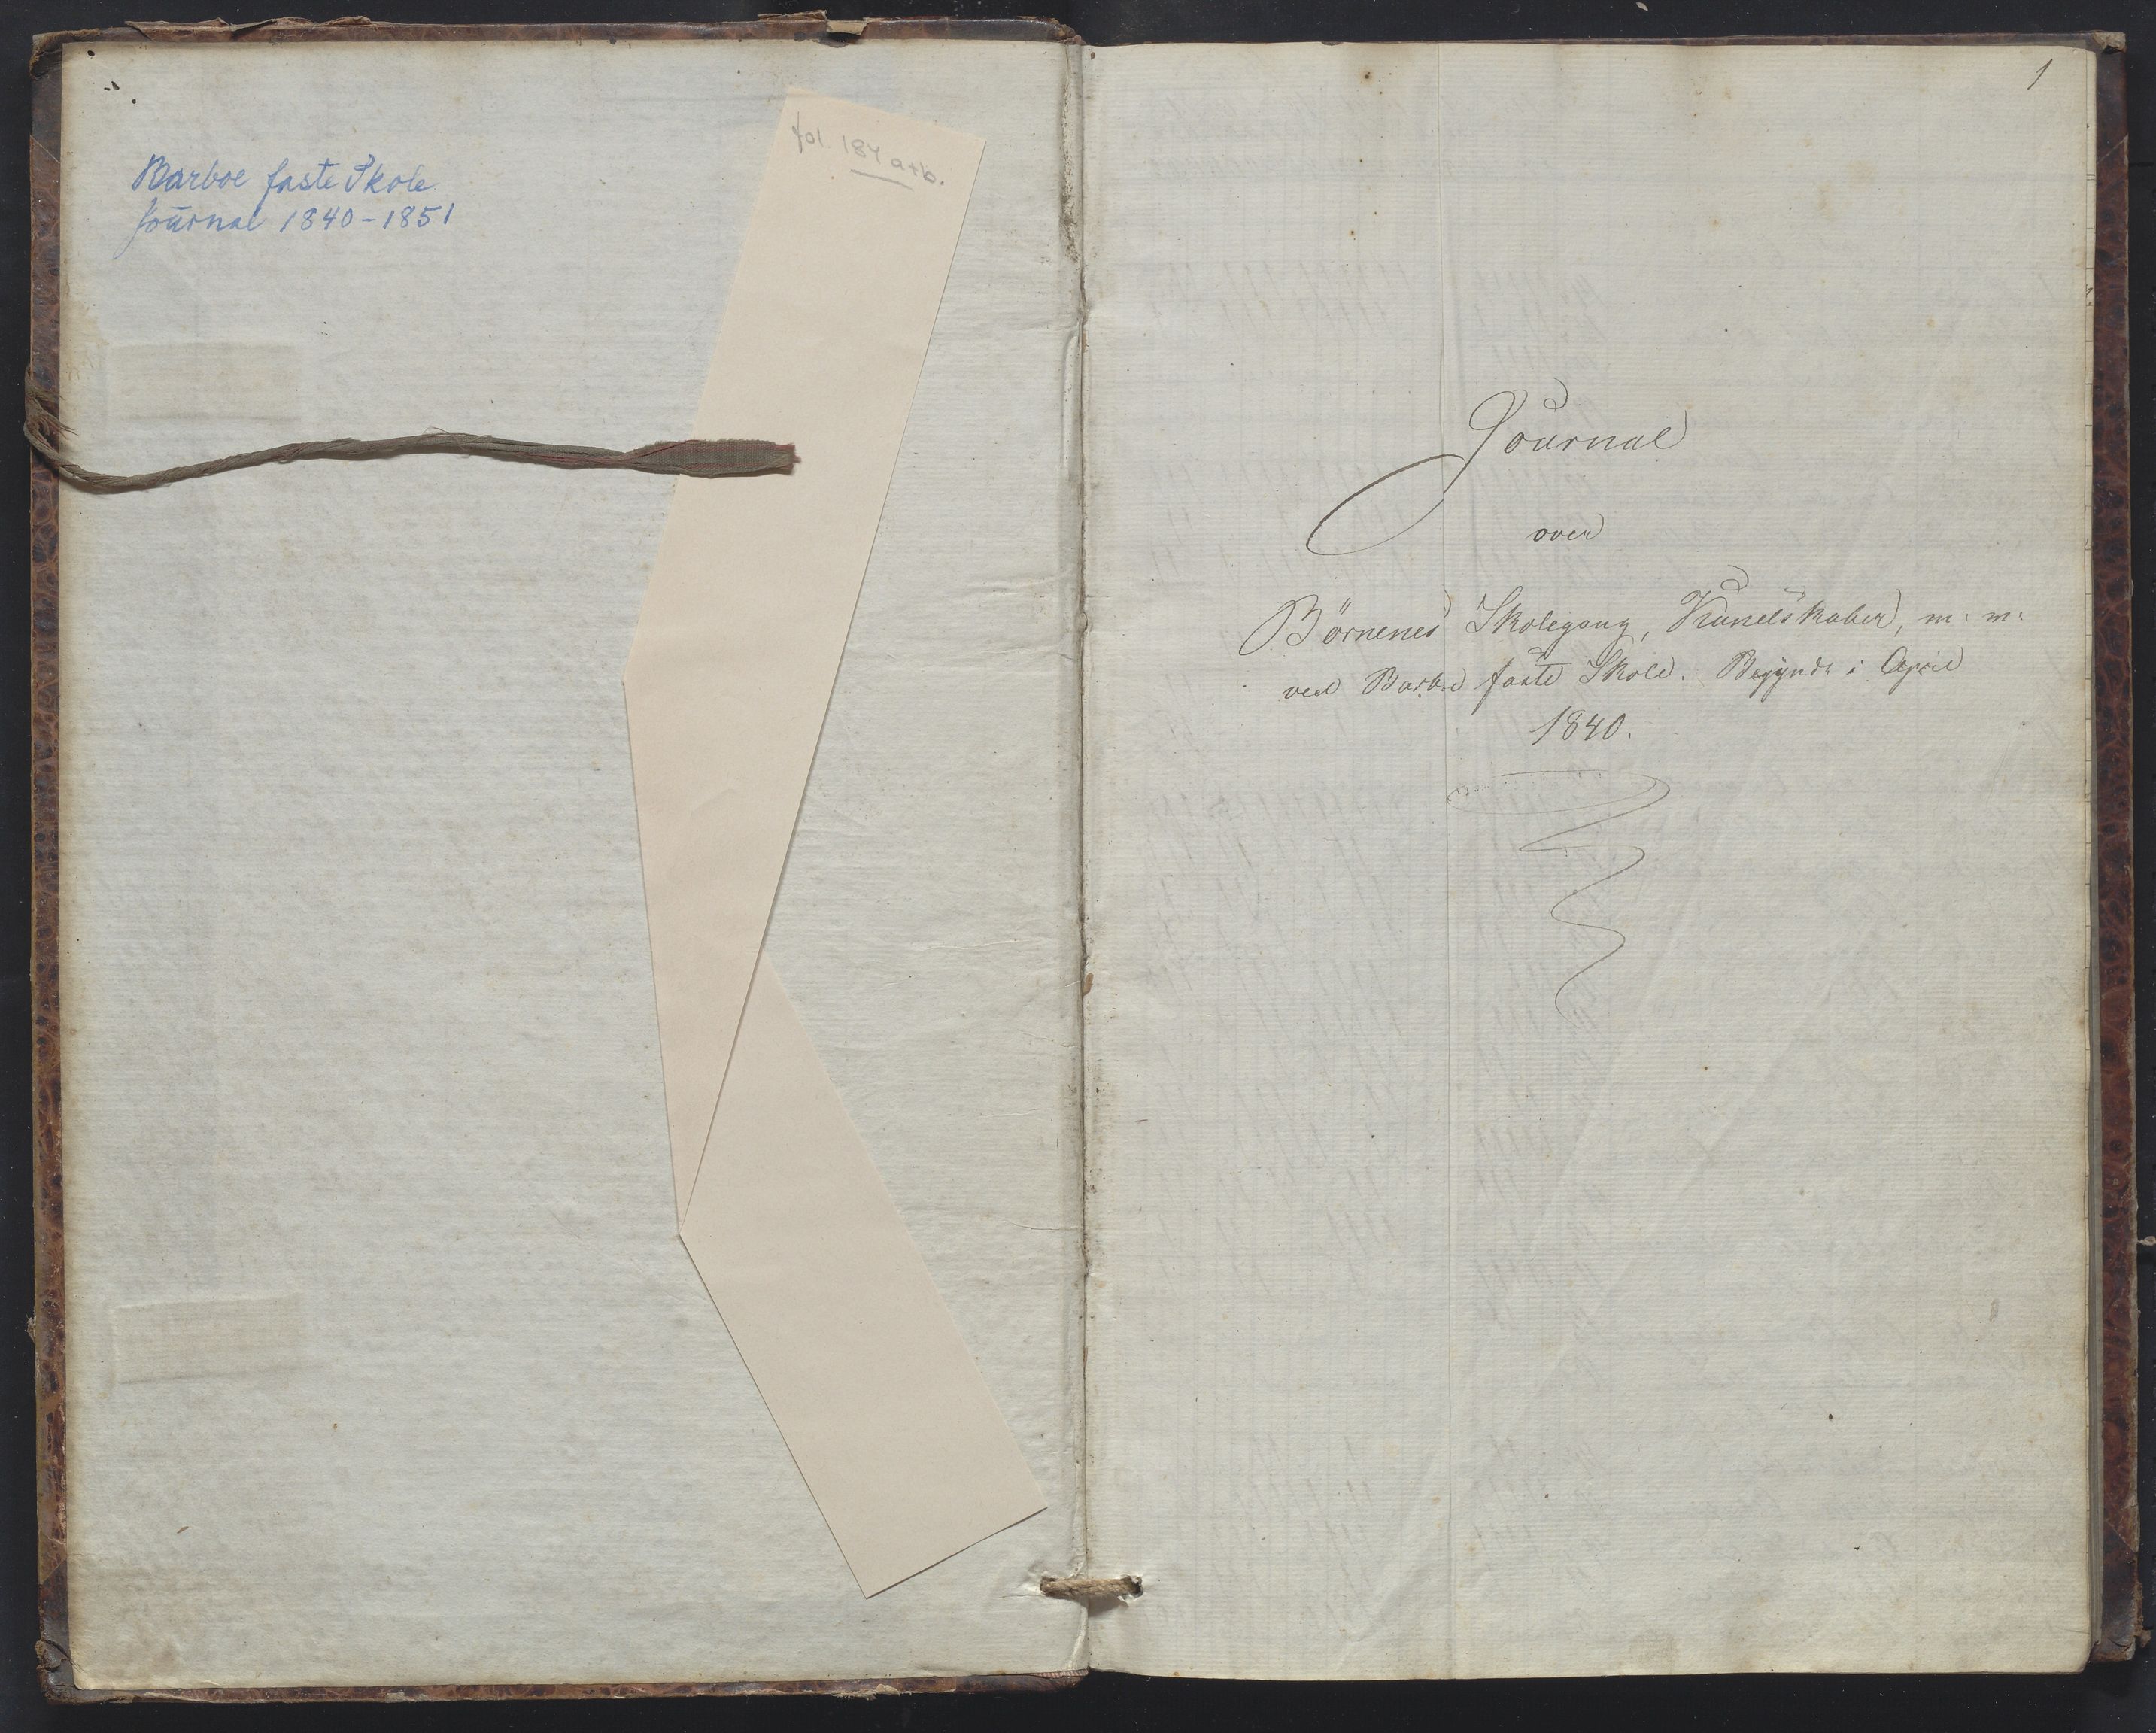 Barboe faste Skole
Journal 1840-1851
fol. 184 a+b.
1
Journal
over
Börnenes Skolegang, Kundskaber, m. m.
ved Barboe faste Skole. Begyndt i April
1840.